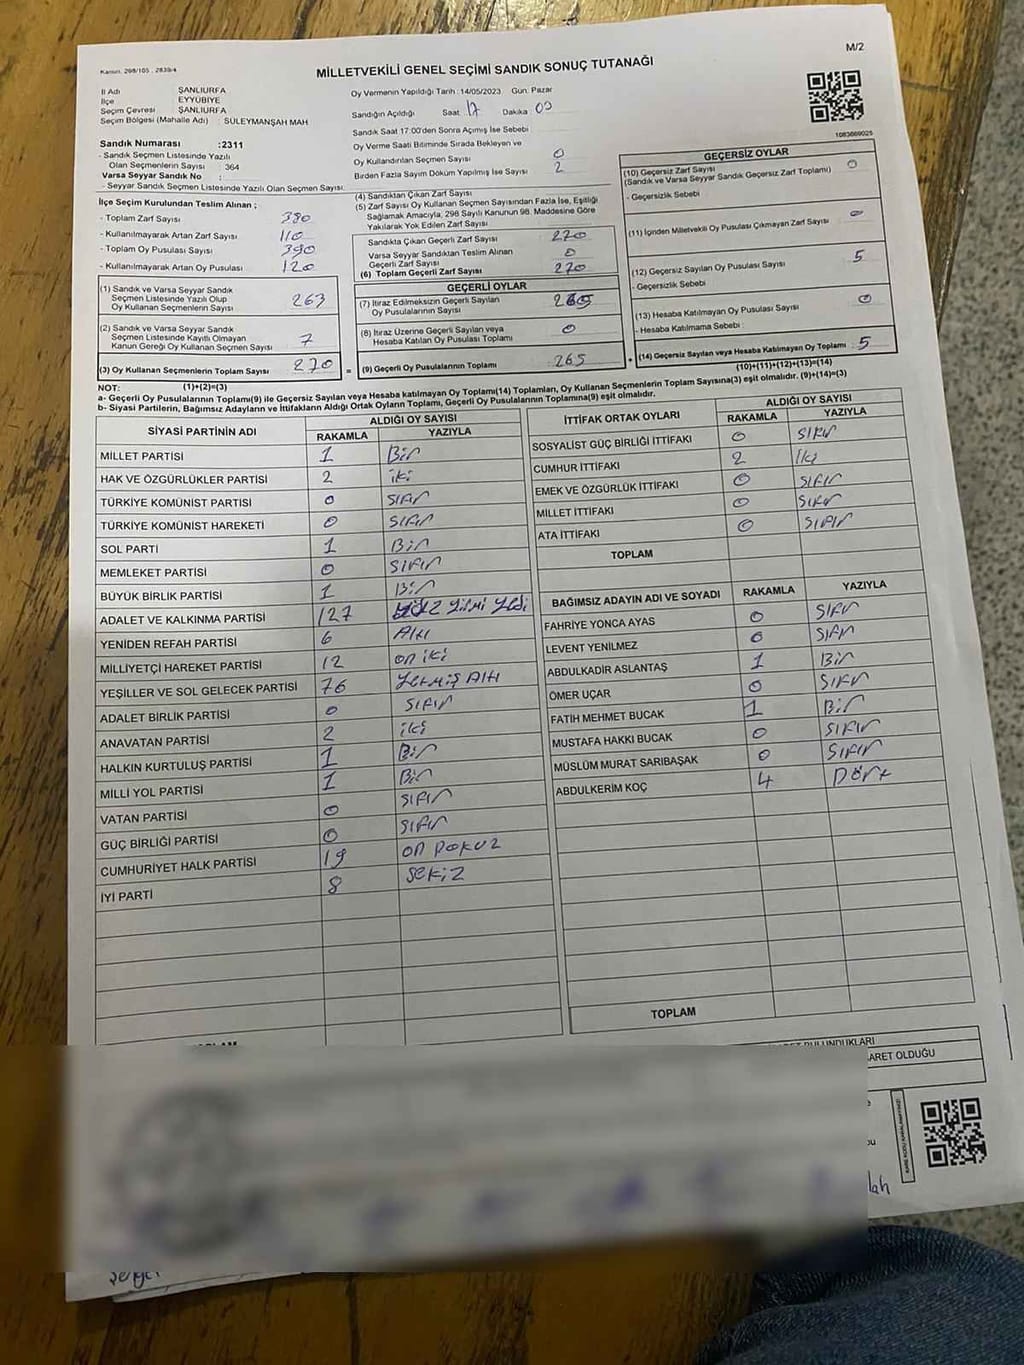 Kanun: 298/105 , 2839/4
M/2
MİLLETVEKİLİ GENEL SEÇİMİ SANDIK SONUÇ TUTANAĞI
İl Adı ŞANLIURFA
İlçe EYYÜBİYE
Seçim Çevresi ŞANLIURFA
Seçim Bölgesi (Mahalle Adı) : SÜLEYMANŞAH MAH
Sandık Numarası :2311
- Sandık Seçmen Listesinde Yazılı
Olan Seçmenlerin Sayısı : 364
Varsa Seyyar Sandık No :
- Seyyar Sandık Seçmen Listesinde Yazılı Olan Seçmen Sayısı:
İlçe Seçim Kurulundan Teslim Alınan ;
- Toplam Zarf Sayısı 380
- Kullanılmayarak Artan Zarf Sayısı 110
- Toplam Oy Pusulası Sayısı 390
- Kullanılmayarak Artan Oy Pusulası 120
(1) Sandık ve Varsa Seyyar Sandık
Seçmen Listesinde Yazılı Olup
Oy Kullanan Seçmenlerin Sayısı 263
(2) Sandık ve Varsa Seyyar Sandık
Seçmen Listesinde Kayıtlı Olmayan
Kanun Gereği Oy Kullanan Seçmen Sayısı 7
(3) Oy Kullanan Seçmenlerin Toplam Sayısı 270
Oy Vermenin Yapıldığı Tarih : 14/05/2023 Gün: Pazar
Sandığın Açıldığı Saat 17 Dakika 03
Sandık Saat 17:00'den Sonra Açımış İse Sebebi :
Oy Verme Saati Bitiminde Sırada Bekleyen ve
Oy Kullandırılan Seçmen Sayısı 0
Birden Fazla Sayım Döküm Yapılmış İse Sayısı 2
(4) Sandıktan Çıkan Zarf Sayısı
(5) Zarf Sayısı Oy Kullanan Seçmen Sayısından Fazla İse, Eşitliği
Sağlamak Amacıyla, 298 Sayılı Kanunun 98. Maddesine Göre
Yakılarak Yok Edilen Zarf Sayısı
Sandıkta Çıkan Geçerli Zarf Sayısı 270
Varsa Seyyar Sandıktan Teslim Alınan
Geçerli Zarf Sayısı 0
(6) Toplam Geçerli Zarf Sayısı 270
GEÇERLİ OYLAR
(7) İtiraz Edilmeksizin Geçerli Sayılan
Oy Pusulalarının Sayısı
(8) İtiraz Üzerine Geçerli Sayılan veya
Hesaba Katılan Oy Pusulası Toplamı 0
= (9) Geçerli Oy Pusulalarının Toplamı 265
1083669025
GEÇERSİZ OYLAR
(10) Geçersiz Zarf Sayısı 0
(Sandık ve Varsa Seyyar Sandık Geçersiz Zarf Toplamı)
- Geçersizlik Sebebi :
(11) İçinden Milletvekili Oy Pusulası Çıkmayan Zarf Sayısı 0
(12) Geçersiz Sayılan Oy Pusulası Sayısı 5
- Geçersizlik Sebebi :
(13) Hesaba Katılmayan Oy Pusulası Sayısı 0
- Hesaba Katılmama Sebebi :
+ (14) Geçersiz Sayılan veya Hesaba Katılmayan Oy Toplamı : 5
(10)+(11)+(12)+(13)=(14)
NOT: (1)+(2)=(3)
a- Geçerli Oy Pusulalarının Toplamı(9) ile Geçersiz Sayılan veya Hesaba katılmayan Oy Toplamı(14) Toplamları, Oy Kullanan Seçmenlerin Toplam Sayısına(3) eşit olmalıdır. (9)+(14)=(3)
b- Siyasi Partilerin, Bağımsız Adayların ve İttifakların Aldığı Ortak Oyların Toplamı, Geçerli Oy Pusulalarının Toplamına(9) eşit olmalıdır.
SİYASİ PARTİNİN ADI ALDIĞI OY SAYISI
RAKAMLA YAZIYLA
MİLLET PARTİSİ 1 Bir
HAK VE ÖZGÜRLÜKLER PARTİSİ 2 iki
TÜRKİYE KOMÜNİST PARTİSİ 0 SIFIR
TÜRKİYE KOMÜNİST HAREKETİ 0 SIFIR
SOL PARTİ 1 Bir
MEMLEKET PARTİSİ 0 SIFIR
BÜYÜK BİRLİK PARTİSİ 1 Bir
ADALET VE KALKINMA PARTİSİ 127 yüz yirmi yedi
YENİDEN REFAH PARTİSİ 6 Altı
MİLLİYETÇİ HAREKET PARTİSİ 12 on iki
YEŞİLLER VE SOL GELECEK PARTİSİ 76 yetmiş Altı
ADALET BİRLİK PARTİSİ 0 SIFIR
ANAVATAN PARTİSİ 2 iki
HALKIN KURTULUŞ PARTİSİ 1 Bir
MİLLİ YOL PARTİSİ 1 Bir
VATAN PARTİSİ 0 SIFIR
GÜÇ BİRLİĞİ PARTİSİ 0 SIFIR
CUMHURİYET HALK PARTİSİ 19 on DOKUZ
İYİ PARTİ 8 SEKİZ
İTTİFAK ORTAK OYLARI ALDIĞI OY SAYISI
RAKAMLA YAZIYLA
SOSYALİST GÜÇ BİRLİĞİ İTTİFAKI 0 SIFIR
CUMHUR İTTİFAKI 2 İki
EMEK VE ÖZGÜRLÜK İTTİFAKI 0 SIFIR
MİLLET İTTİFAKI 0 SIFIR
ATA İTTİFAKI 0 SIFIR
TOPLAM
BAĞIMSIZ ADAYIN ADI VE SOYADI RAKAMLA YAZIYLA
FAHRİYE YONCA AYAS 0 SIFIR
LEVENT YENİLMEZ 0 SIFIR
ABDULKADİR ASLANTAŞ 1 Bir
ÖMER UÇAR 0 SIFIR
FATİH MEHMET BUCAK 1 Bir
MUSTAFA HAKKI BUCAK 0 SIFIR
MÜSLÜM MURAT SARIBAŞAK 0 SIFIR
ABDULKERİM KOÇ 4 Dört
TOPLAM
ARET OLDUĞU
lah